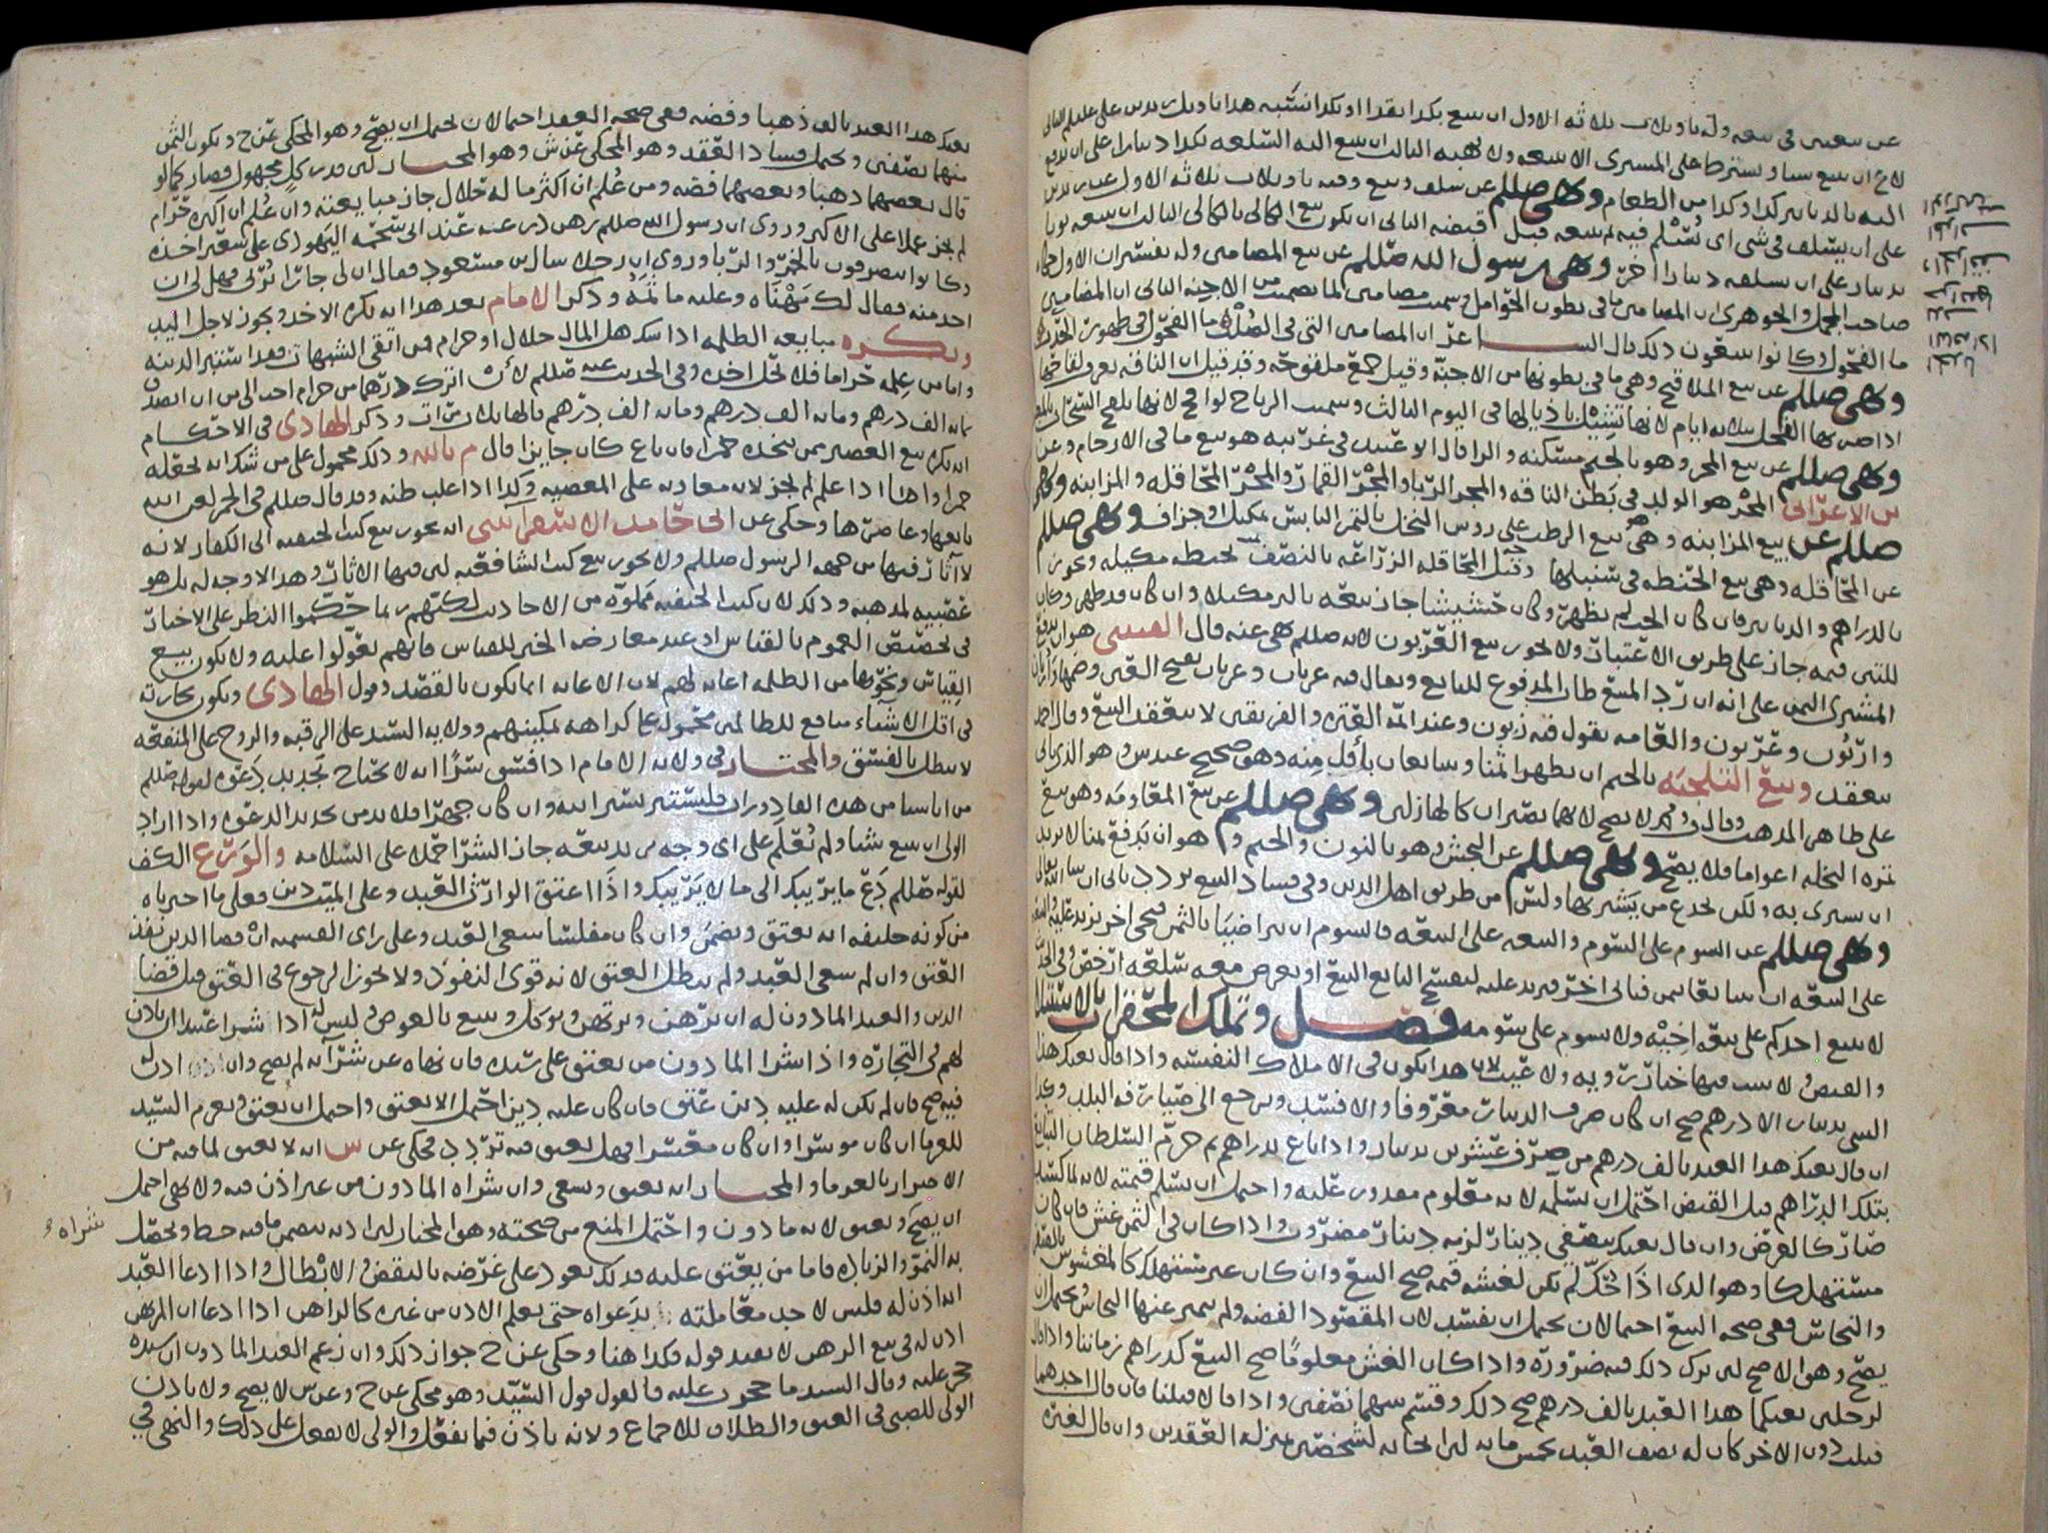 عن بيعتين في بيعه وله تاويلات ثلاثه الاول ان يبيع بكذا نقدا او بكذا نسيه هذا تاويل زيد بن علي عليلم الثاني
ان يبيع شيا ويشترط على المشتري الا يبيعه ولا يهبه الثالث ان يبيع اليه السلعه بكذا دينارا على ان يدفع
اليه بالدنانير كذا وكذا من الطعام ونهى صللم عن سلف وبيع وفيه تاويلات ثلاثه الاول
على ان يسلف في شي اي يُسْلم فيه ثم بيعه قبل قبضه الثاني ان يكون بيع الكالي بالكالي الثالث ان يبيعه ثوبا
بدينار على ان يسلفه دينارا اخر ونهى رسول الله صللم عن بيع المضامين وله تفسيران الاول حكاه
صاحب المجمل والجوهري ان المضامين ما في بطون الحوامل وسميت مضامين لما تضمنت من الاجنه الثاني ان المضامين
ما الفحول وكانوا يبيعون ذلك قال الشاعر ان المضامين التي في الصُلْب ما الفحول في ظهور الحُدب
ونهى صللم عن بيع الملاقيح وهي ما في بطونها من الاجنّه وقيل جمع ملقوحه وقد قيل ان الناقه يعرف لقاحها
اذا ضربها الفحل بثلاثه ايام لانها تشيل باذيالها في اليوم الثالث وسميت الرياح لواقح لانها تلقح السحاب
ونهى صللم عن بيع المجر وهو بالجيم مسكنه والرا قال ابو عبيد في غريبه هو بيع ما في الارحام وعن
بن الاعرابي المجْر هو الولد في بَطن الناقه والمجر الربا والمجْر القمار والمجْر المحاقله والمزابنه ونهى
صللم عن بيع المزابنه وهي بيع الرطب على روس النخل بالتمر اليابس بمكيل او جزاف ونهى صللم
عن المحاقله وهي بيع الحنطه في سنبلها وقيل المحاقله الزراعه بالنصف بحنطه مكيله ويجوز
بالدراهم والدنانير فان كان الحب لم يظهر وكان حشيشا جاز بيعه بالبر مكيلا وان كان قد ظهر وكان
للتبن قيمه جاز على طريق الاعتبار ولا يجوز بيع العربون لانه صللم نهى عنه قال العنسي هو ان يدفع
المشتري الثمن على انه ان ردّ المبيع طاب المدفوع للبايع ويقال فيه عربان وعربان بفتح العين وضمها واربان
واربُون وعربون والعامه يقول فيه زبون وعند ائمه العتره والفريقين لا ينعقد البيع وقال احمد
ينعقد وبيع التلجيَه بالجيم ان يظهرا ثمنا ويتبايعان بأقل مِنه وهو صحيح عند س وهو الذي ياتي
على ظاهر المذهب وقال ف ومحمد لا يصح لانهما يصيران كالهازلين ونهى صللم عن بيع المعاومه وهو بيع
ثمره النخله اعواما فلا يصح ونهى صللم عن النجش وهو بالنون والجيم وهو ان يَدفع ثمنا لا يريد
ان يشتري به ولكن يخدع من يَشتري بها وليس من طريق اهل الدين وفي فساد البيع تردد ياتي ان شا الله تعالى
ونهى صللم عن السوم على السّوم والبيعه على البيعه فالسوم ان يتراضيَا بالثمن فيجي اخر يزيد عليه والبيعه
على البيعه ان يتبايعا ثمن فياتي اخر فيزيد عليه ليفسخ البايع البيع او يعرض معه سلعه ارخص وفي الخبر
لا يبيع احدكم على بيعه اخيه ولا يسوم على سومه فصل وتملك المحقرات بالاستيلا
والقبض ولا يثبت فيها خيار رويه ولا عيب لان هذا يكون في الاملاك النفيسه واذا قال بعتك هذا
الشي بدينار الا درهم صح ان كان صرف الدينار معروفا والا فسد ويرجع الى صيارفه البلد وكذا
ان قال بعتك هذا العبد بالف درهم من صرف عشرين بدينار واذا باع بدراهم ثم حرّم السلطان التبايع
بتلك الدراهم قبل القبض احتمل ان يسلّمه لانه معلوم مقدور عليه واحتمل ان يسلّم قيمته لانه لما كسد
صار كالعرض وان قال بعتك بنصفي دينار لزمه دينار مضروب واذا كان في الثمن غش فان كان
مستهلكا وهو الذي اذا حُكّ لم يكن لغشه قيمه صح البيع وان كان غير مستهلك كالمغشوش بالفضه
والنحاس ففي صحه البيع احتمالان يحتمل ان يفسد لان المقصود الفضه ولم يتميز عنها النحاس ويحتمل ان
يصح وهو الاصح لان ترك ذلك فيه ضروره واذا كان الغش معلومًا صح البيع كدراهم زماننا واذا قال
لرجلين بعتكما هذا العبد بالف درهم صح ذلك وقسم بينهما نصفين واذا قالا قبلنا فان قال احدهما
قبلت دون الاخر كان له نصف العبد بخمس مايه لان ايجابه لشخصين بمنزله العقدين وان قال لغيره
بعتك هذا العبد بالف ذهبا وفضه ففي صحه العقد احتمالان يحتمل ان يصح وهو المحكي عن ح ويكون الثمن
منهما نصفين ويحتمل فساد العقد وهو المحكي عن ش وهو المختار لان قدر كل مجهول فصار كما لو
قال بعضهما ذهبا وبعضهما فضه ومن عُلم ان اكثر ماله حلال جاز مبايعته وان عُلم ان اكثره حرام
لم يجز عملا على الاكثر وروي ان رسول الله صللم رهن درعه عند ابي شحمه اليهودي على شعير اخذه
وكانوا يتصرفون بالخمر والربا وروي ان رجلا سال بن مسعود فقال ان لي جارا يُرْبي فهل لي ان
اخذ منه فقال لك مَهْنَاه وعليه ماثمَه وذكر الامام بعد هذا انه يكره الاخذ ويجوز لاجل اليد
ويكره مبايعه الظلمه اذا شك هل المال حلال او حرام فمن اتقى الشبهات فقد استبرا لدينه
واما من علمه حراما فلا يحل اخذه وفي الحديث عنه صللم لأن اترك درهما من حرام احب الي من ان اتصدق
بمايه الف درهم ومايه الف درهم ومايه الف درهم قالها ثلاث مرات وذكر الهادي في الاحكام
انه يكره بيع العصير ممن يتخذه خمرا فان باع كان جايزا قال م بالله وذلك محمول على من شك انه يجعله
خمرا واما اذا علم لم يجز لانه معاونه على المعصيه وكذا اذا غلب ظنه وقد قال صللم في الخمر لعن الله
بايعها وعاصرها وحكي عن ابي حامد الاسفرايني انه يجوز بيع كتب الحنفيه الى الكفار لانه
لا آثار فيها من جهه الرسول صللم ولا يجوز بيع كتب الشافعيه لان فيها الاثار وهذا لا وجه له بل هو
عصبيه لمذهبه وذلك لان كتب الحنفيه مملوّه من الاحاديث لكنهم ربما حكّموا النظر على الاخبار
في تخصيص العموم بالقياس او عند معارضه الخبر للقياس فانهم يعوّلوا عليه ولا يكون بيع
القياس ونحوها من الظلمه اعانه لهم لان الاعانه انما تكون بالقصد وقول الهادي ويكون تجارته
في اقل الاشياء منافع للظالمين محموله على كراهه تمكينهم وولايه السيد على الرقبه والزوج على المنفعه
لا يبطل بالفسق والمختار في ولايه الامام اذا فسق سرًا انه لا يحتاج تجديد دَعوه لقوله صللم
من اتا شيا من هذه القاذورات فليستتر بستر الله وان كان جهرًا فلا بد من تجديد الدعوه واذا اراد
الولي ان يبيع شيا ولم يُعْلَم على اي وجه يريد بيعه جاز الشرا حملا على السلامه والورع الكف
لقوله صللم دَعْ ما يريبك الى ما لا يريبك واذا اعتق الوارث العبد وعلى الميت دين فعلى ما اخترناه
من كونه خليفه انه يعتق ويضمن وان كان مفلسا سعى العبد وعلى راي القسميه ان قضا الدين نفذ
العتق وان لم سعى العبد ولم يبطل العتق لانه قوي النفوذ ولا يجوز الرجوع في العتق قبل قضا
الدين والعبد الماذون له ان يرهن ويرتهن ويوكل ويبيع بالعوض وليس له اذا شرا عبيدا ان ياذن
لهم في التجاره واذا شرا الماذون من يعتق على سيده فان نهاه عن شرآيه لم يصح وان اذن
فيه صح فان لم يكن له عليه دين عتق فان كان عليه دين احتمل الا يعتق واحتمل ان يعتق ويغرم السيد
للغرما ان كان موسرا وان كان معسرا فهل يعتق فيه تردد فحكي عن س انه لا يعتق لما فيه من
الاضرار بالغرما والمختار انه يعتق ويسعى وان شراه الماذون من غير اذن فيه ولا نهي احتمل
ان يصح ويعتق لانه ماذون واحتمل المنع من صحته وهو المختار لان اذنه يتضمن ما فيه حظ ويحصل شراه
به النموّ والزياده فاما من يعتق عليه فذلك يعود على غرضه بالنقض والابطال واذا ادعا العبد
انه اذن له فليس لاحد معاملته بدَعواه حتى يعلم الاذن من غيره كالراهن اذا ادعا ان المرتهن
اذن له في بيع الرهن لا يعتمد قوله فكذا هنا وحكي عن ح جواز ذلك وان زعم العبد الماذون ان سيده
حجر عليه وقال السيد ما حجرت عليه فالقول قول السيّد وهو محكي عن ح وعن س لا يصح ولا ياذن
الولي للصبي في العتق والطلاق للاجماع ولانه ياذن فيما يفعل والولي لا يفعل على ذلك والنهي في